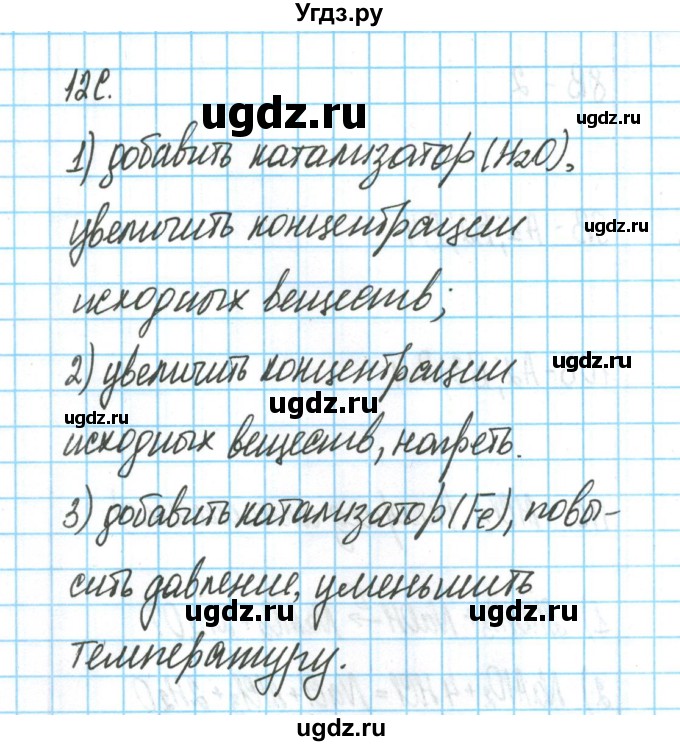 Угдз.ру
12С.
ugdz.ru
ugdz.ru
1) добавить катализатор (H₂O),
увеличить концентрации
ugdz.ru
исходных веществ;
ugdz.ru
2) увеличить концентрации
ugdz.ru
ugdz.ru
исходных веществ, нагреть.
ugdz.ru
3) добавить катализатор (Fe), повы-
сить давление, уменьшить
ugdz.ru
ugdz.ru
температуру.
ugdz.ru